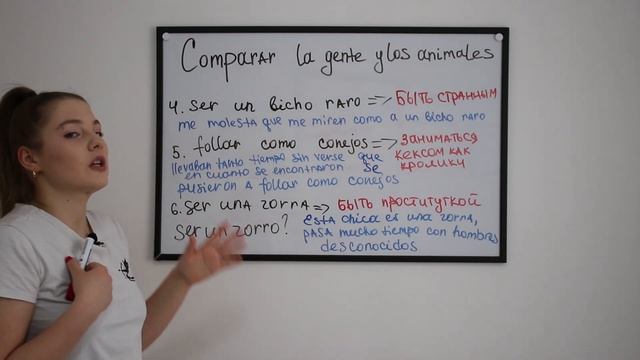 Comparar la gente y los animales
4. ser un bicho raro => БЫТЬ СТРАННЫМ
me molesta que me miren como a un bicho raro
5. follar como conejos => ЗАНИМАТЬСЯ КЕКСОМ КАК КРОЛИКИ
llevaban tanto tiempo sin verse que
en cuanto se encontraron se
pusieron a follar como conejos
6. ser una zorra => БЫТЬ ПРОСТИТУТКОЙ
ser un zorro?
esta chica es una zorra,
pasa mucho tiempo con hombres
desconocidos